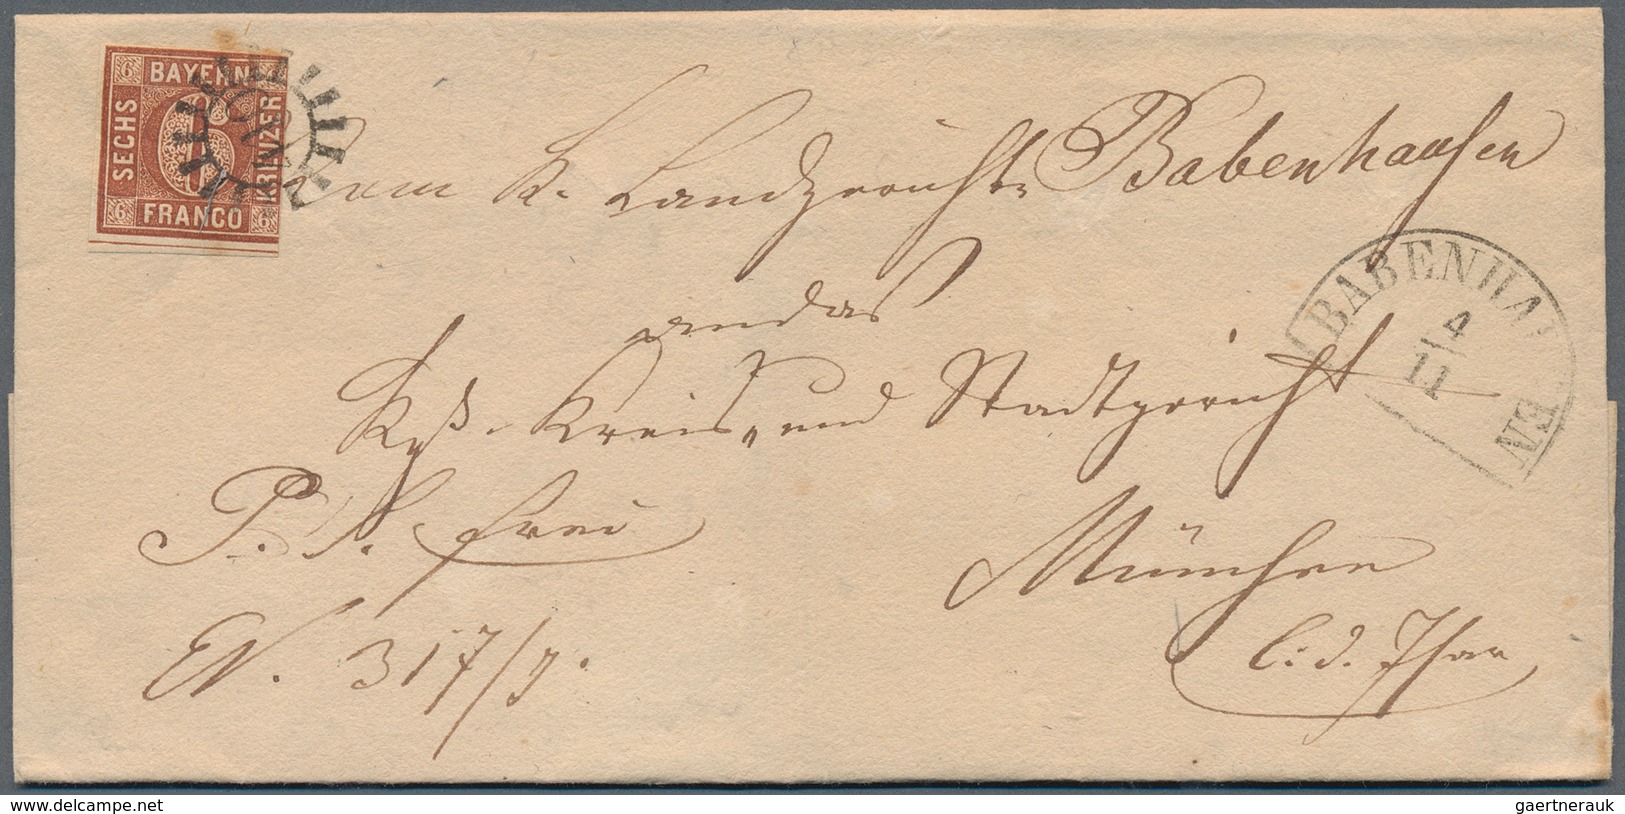 6 BAYERN 6
SECHS 6 KREUZER
6 FRANCO 6
Vom K. Landgerichte Babenhausen
an das
Kgl. Kreis- und Stadtgericht
BABENHAUSEN
4
11
P. S. frei
München
EN. 317/
l. d. Isar
www.delcampe.net
gaertnerauk